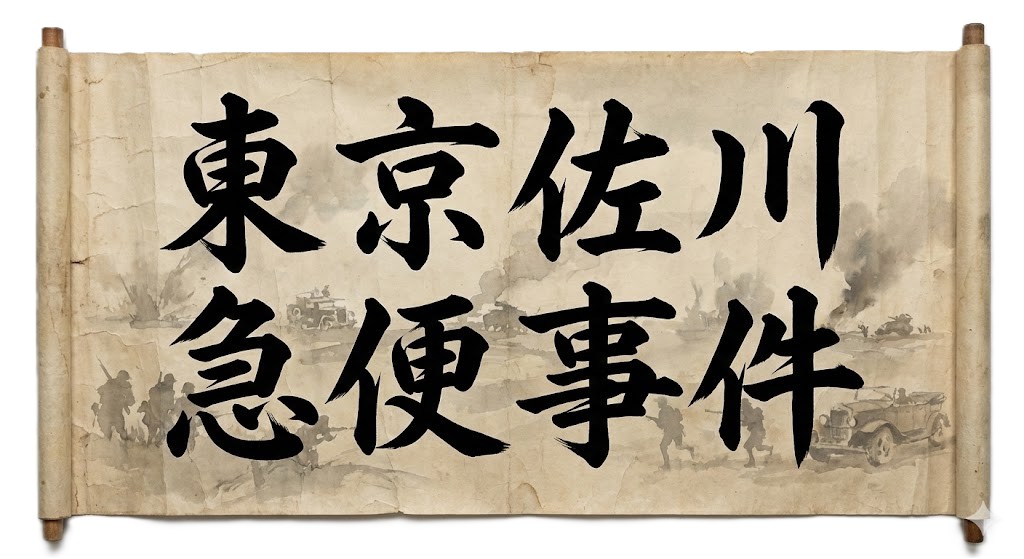 東京佐川
急便事件